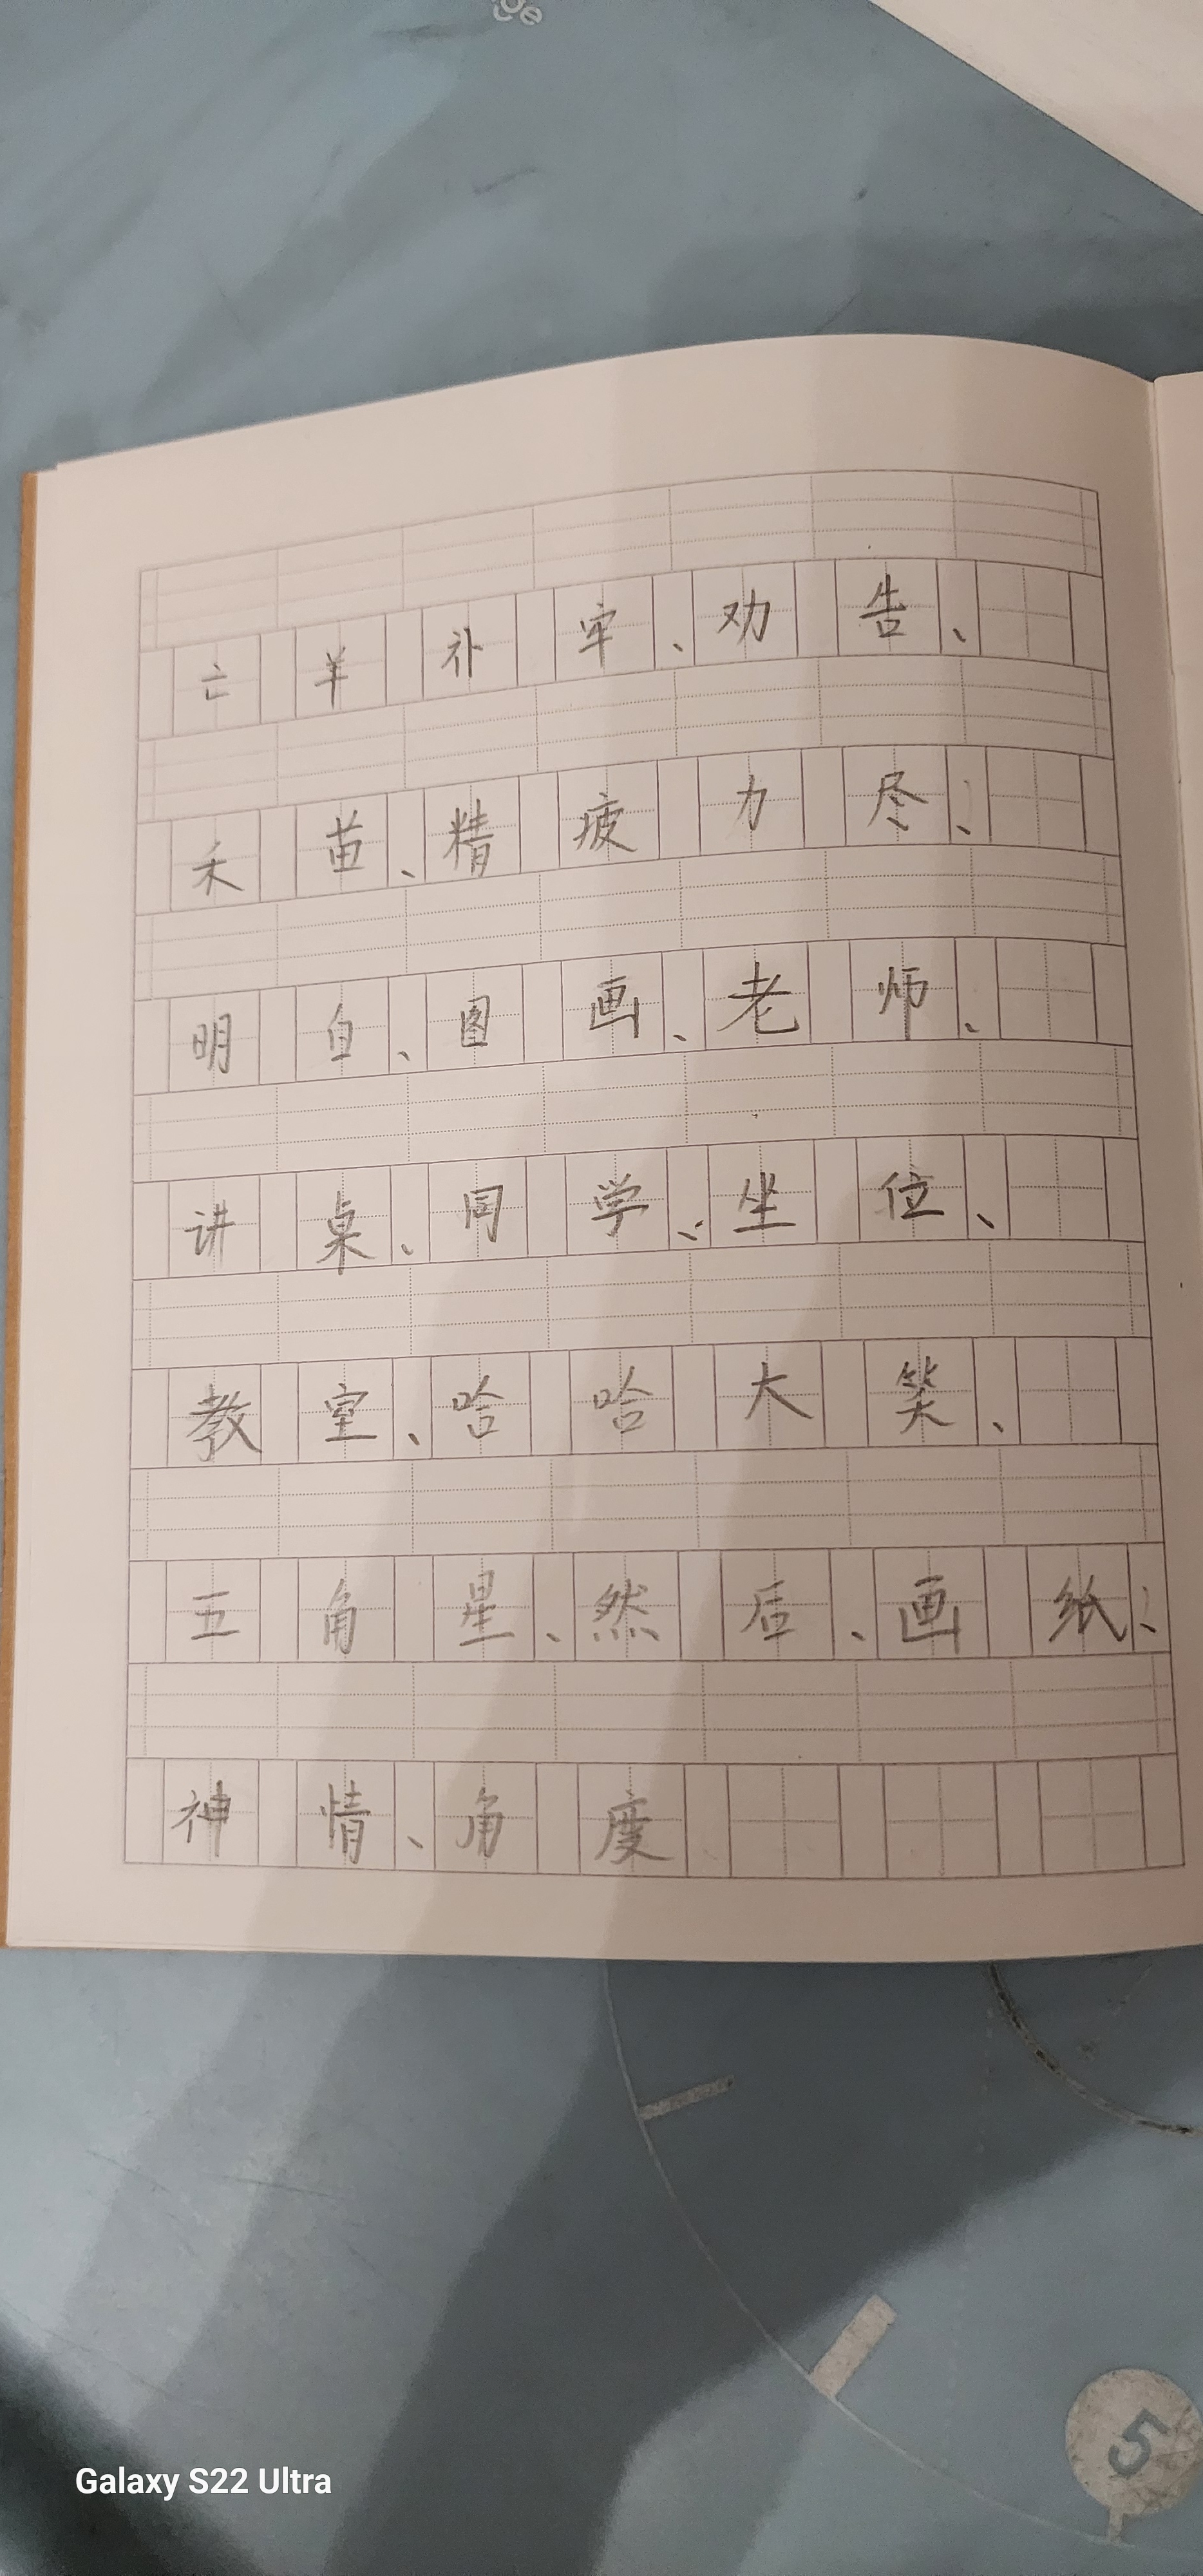 ge
亡羊补牢、劝告、
禾苗、精疲力尽、
明白、图画、老师、
讲桌、同学、坐位、
教室、哈哈大笑、
五角星、然后、画纸、
神情、角度
5
Galaxy S22 Ultra